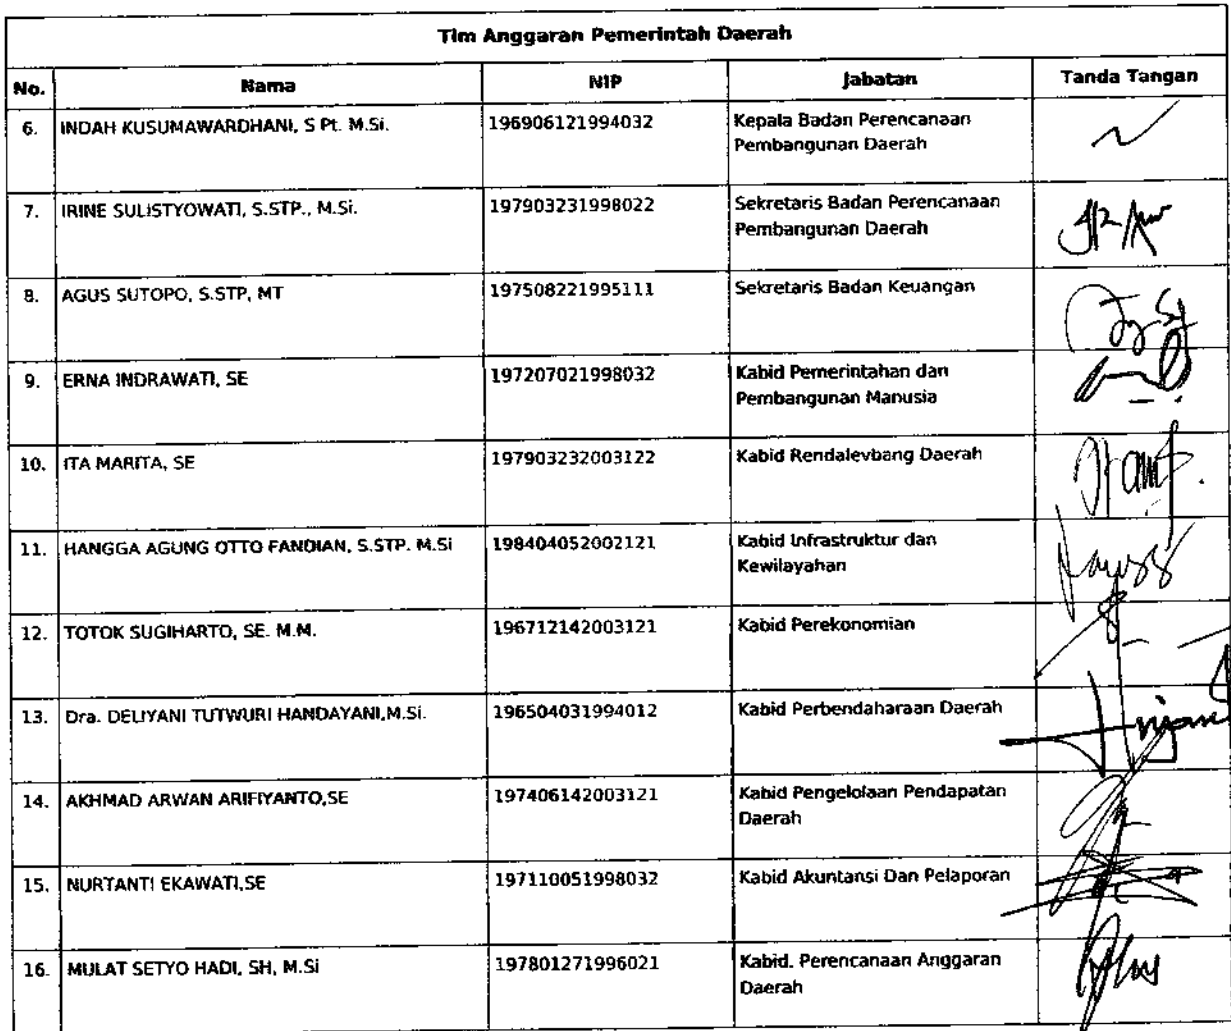 Tim Anggaran Pemerintah Daerah
No. Nama NIP Jabatan Tanda Tangan
6. INDAH KUSUMAWARDHANI, S Pt. M.Si. 196906121994032 Kepala Badan Perencanaan
Pembangunan Daerah
7. IRINE SULISTYOWATI, S.STP., M.Si. 197903231998022 Sekretaris Badan Perencanaan
Pembangunan Daerah
8. AGUS SUTOPO, S.STP, MT 197508221995111 Sekretaris Badan Keuangan
9. ERNA INDRAWATI, SE 197207021998032 Kabid Pemerintahan dan
Pembangunan Manusia
10. ITA MARITA, SE 197903232003122 Kabid Rendalevbang Daerah
11. HANGGA AGUNG OTTO FANDIAN, S.STP. M.Si 198404052002121 Kabid Infrastruktur dan
Kewilayahan
12. TOTOK SUGIHARTO, SE. M.M. 196712142003121 Kabid Perekonomian
13. Dra. DELIYANI TUTWURI HANDAYANI,M.Si. 196504031994012 Kabid Perbendaharaan Daerah
14. AKHMAD ARWAN ARIFIYANTO,SE 197406142003121 Kabid Pengelolaan Pendapatan
Daerah
15. NURTANTI EKAWATI,SE 197110051998032 Kabid Akuntansi Dan Pelaporan
16. MULAT SETYO HADI, SH, M.Si 197801271996021 Kabid. Perencanaan Anggaran
Daerah